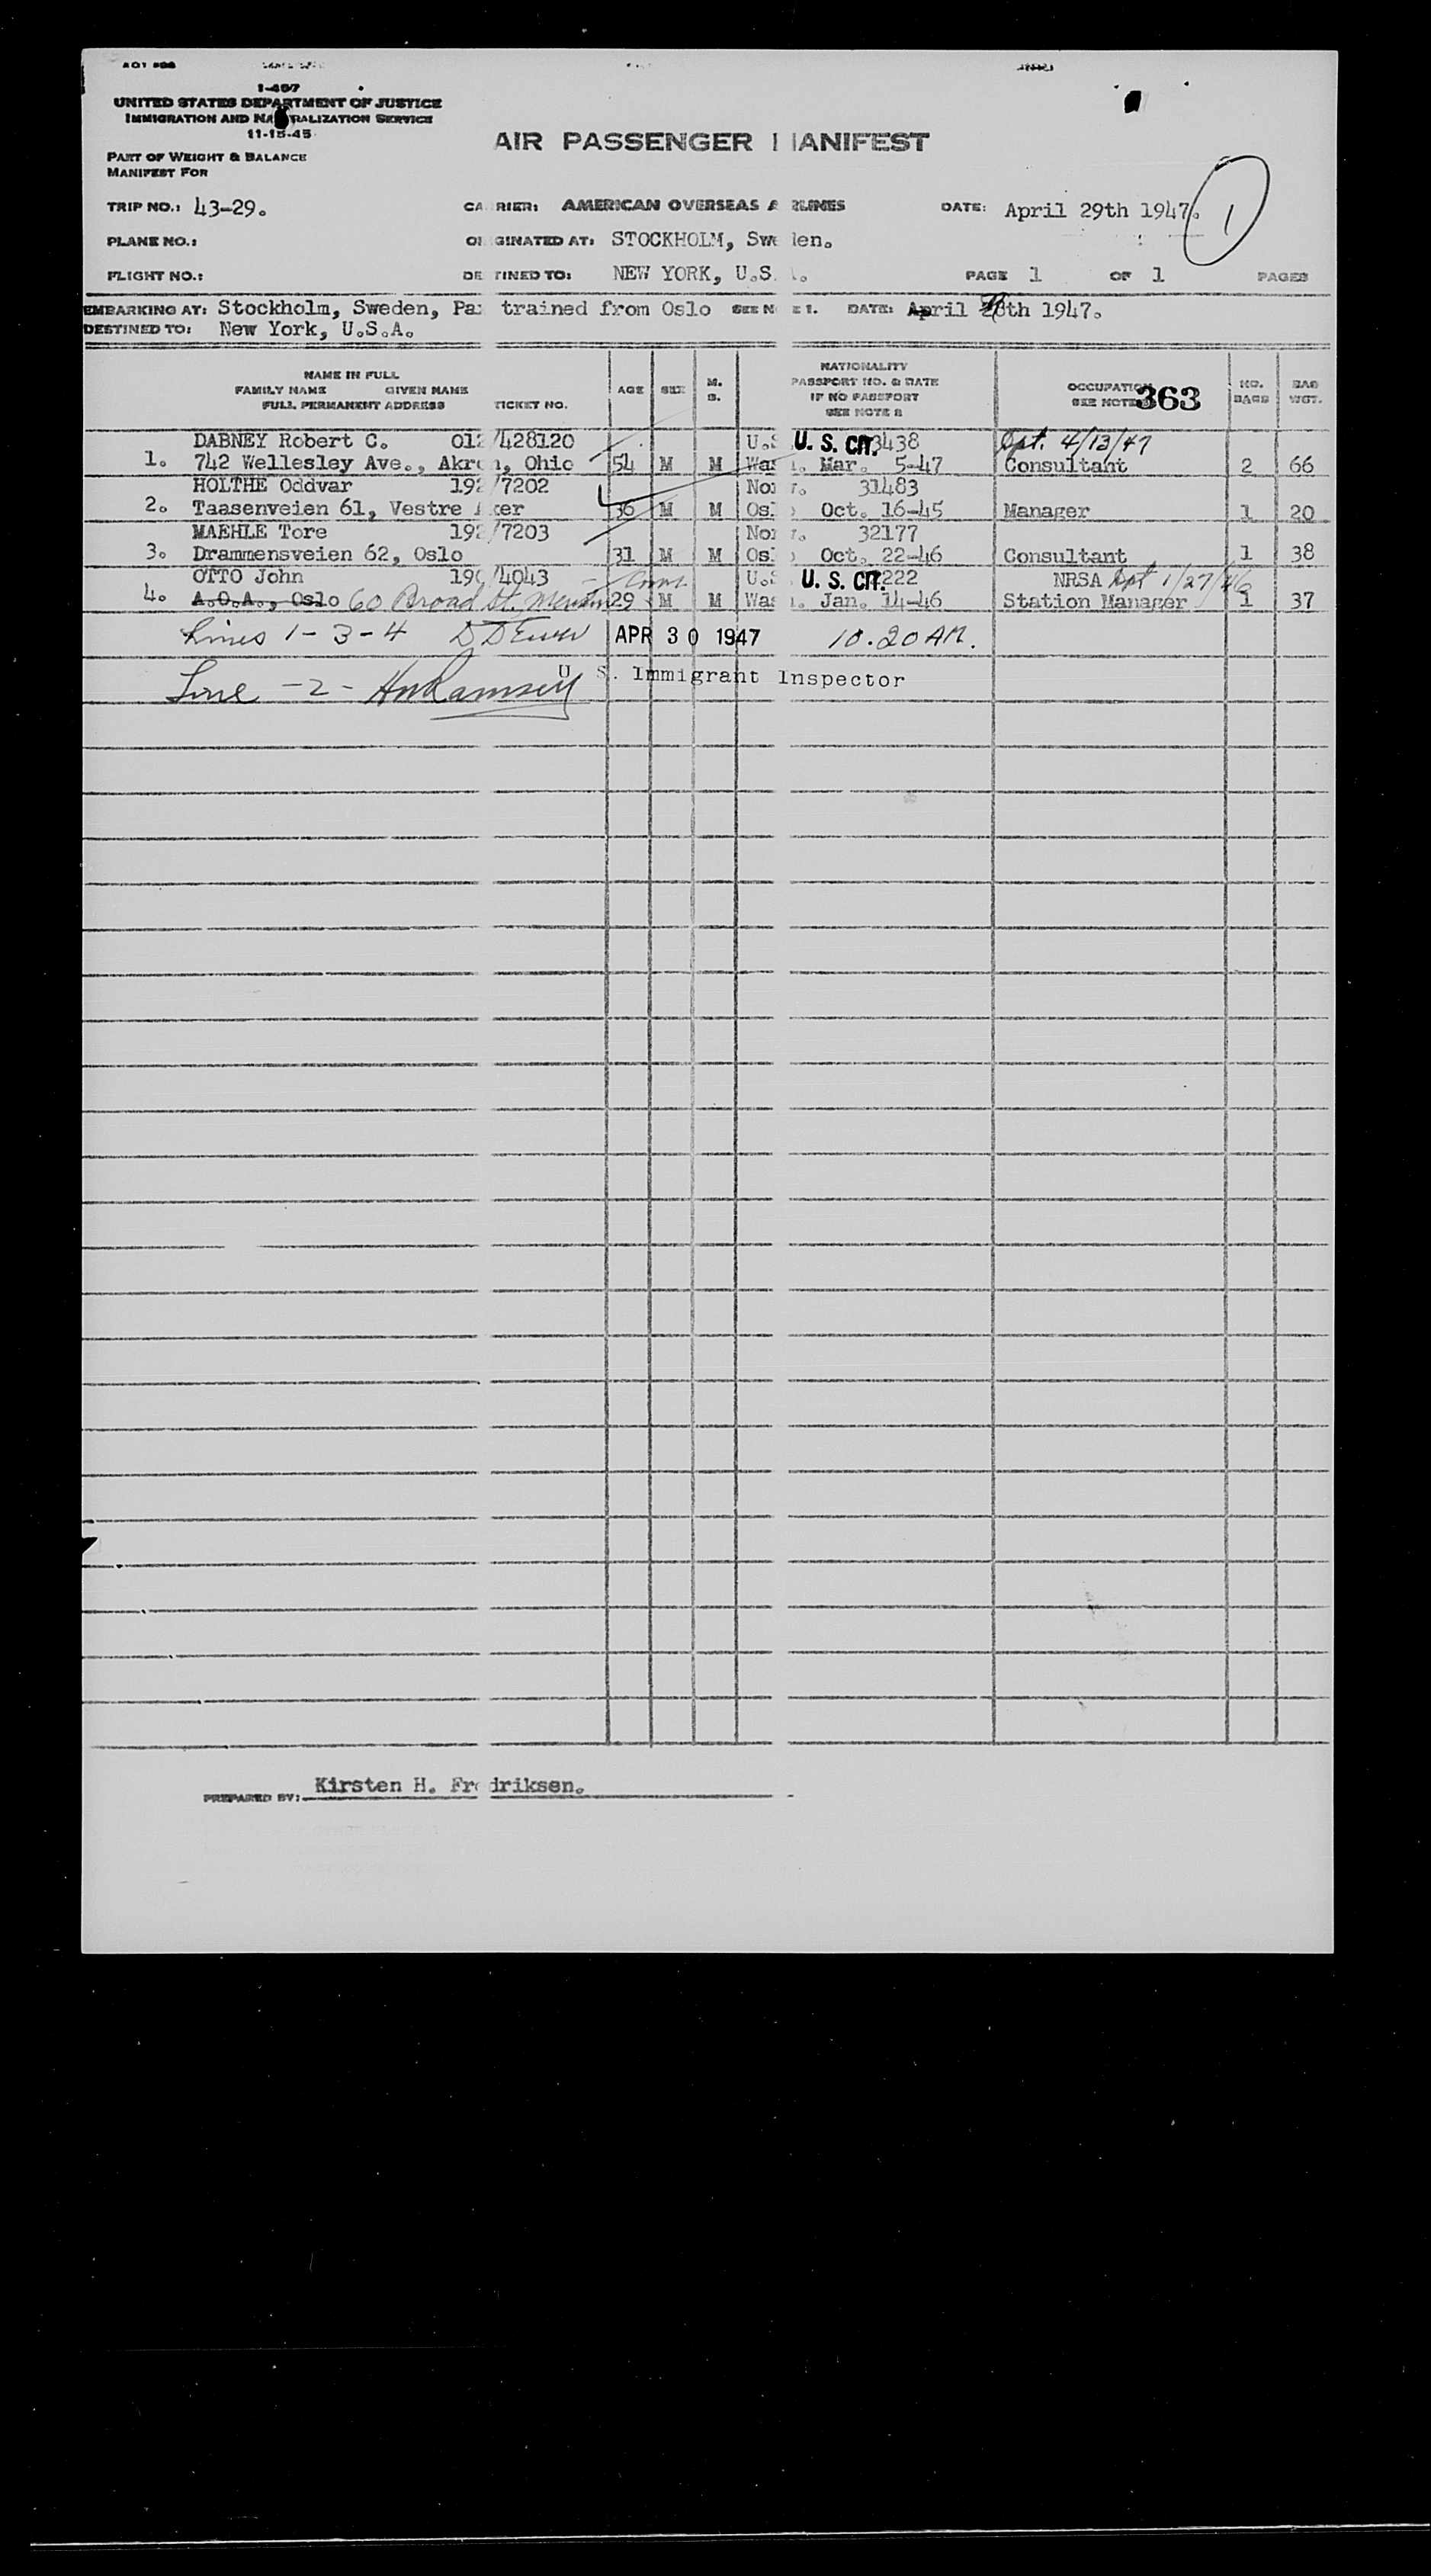 I-467
UNITED STATES DEPARTMENT OF JUSTICE
IMMIGRATION AND NATURALIZATION SERVICE
11-15-45
AIR PASSENGER MANIFEST
PART OF WEIGHT & BALANCE
MANIFEST FOR
TRIP NO.: 43-29. CARRIER: AMERICAN OVERSEAS AIRLINES DATE: April 29th 1947. 1
PLANE NO.: ORIGINATED AT: STOCKHOLM, Sweden.
FLIGHT NO.: DESTINED TO: NEW YORK, U.S.A. PAGE 1 OF 1 PAGES
EMBARKING AT: Stockholm, Sweden, Pax trained from Oslo SEE NOTE 1. DATE: April 28th 1947.
DESTINED TO: New York, U.S.A.
NAME IN FULL
FAMILY NAME GIVEN NAME
FULL PERMANENT ADDRESS TICKET NO. AGE SEX M. S. NATIONALITY PASSPORT NO. & DATE IF NO PASSPORT SEE NOTE 2 OCCUPATION SEE NOTE 363 NO. BAGS BAG WGT.
DABNEY Robert C. 012/428120 U.S. U. S. CIT. 3438 Dpt. 4/13/47
1. 742 Wellesley Ave., Akron, Ohio 54 M M Wash. Mar. 5-47 Consultant 2 66
HOLTHE Oddvar 192/7202 Norw. 31483
2. Taasenveien 61, Vestre Aker 36 M M Oslo Oct. 16-45 Manager 1 20
MAEHLE Tore 192/7203 Norw. 32177
3. Drammensveien 62, Oslo 31 M M Oslo Oct. 22-46 Consultant 1 38
OTTO John 190/4043 U.S. U. S. CIT. 222 NRSA Dpt 1/27/46
4. A.O.A., Oslo 60 Broad St. 29 M M Wash. Jan. 14-46 Station Manager 1 37
Lines 1-3-4 APR 30 1947 10.20 AM.
Line -2- U. S. Immigrant Inspector
PREPARED BY: Kirsten H. Fredriksen.